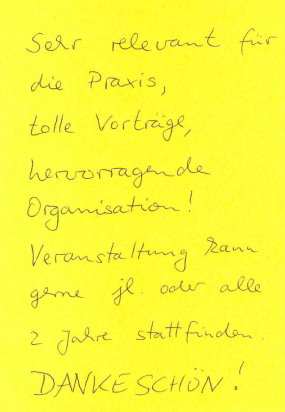 Sehr relevant für
die Praxis,
tolle Vorträge,
hervorragende
Organisation!
Veranstaltung kann
gerne jl. oder alle
2 Jahre stattfinden.
DANKESCHÖN!